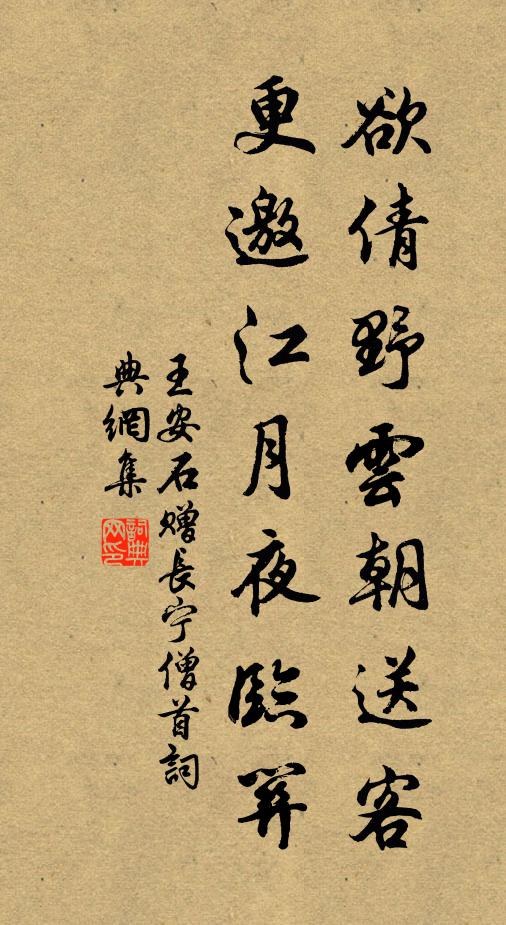 欲倩野雲朝送客
更邀江月夜臨關
王安石贈長宁僧首詞
典網集
詞典
网印